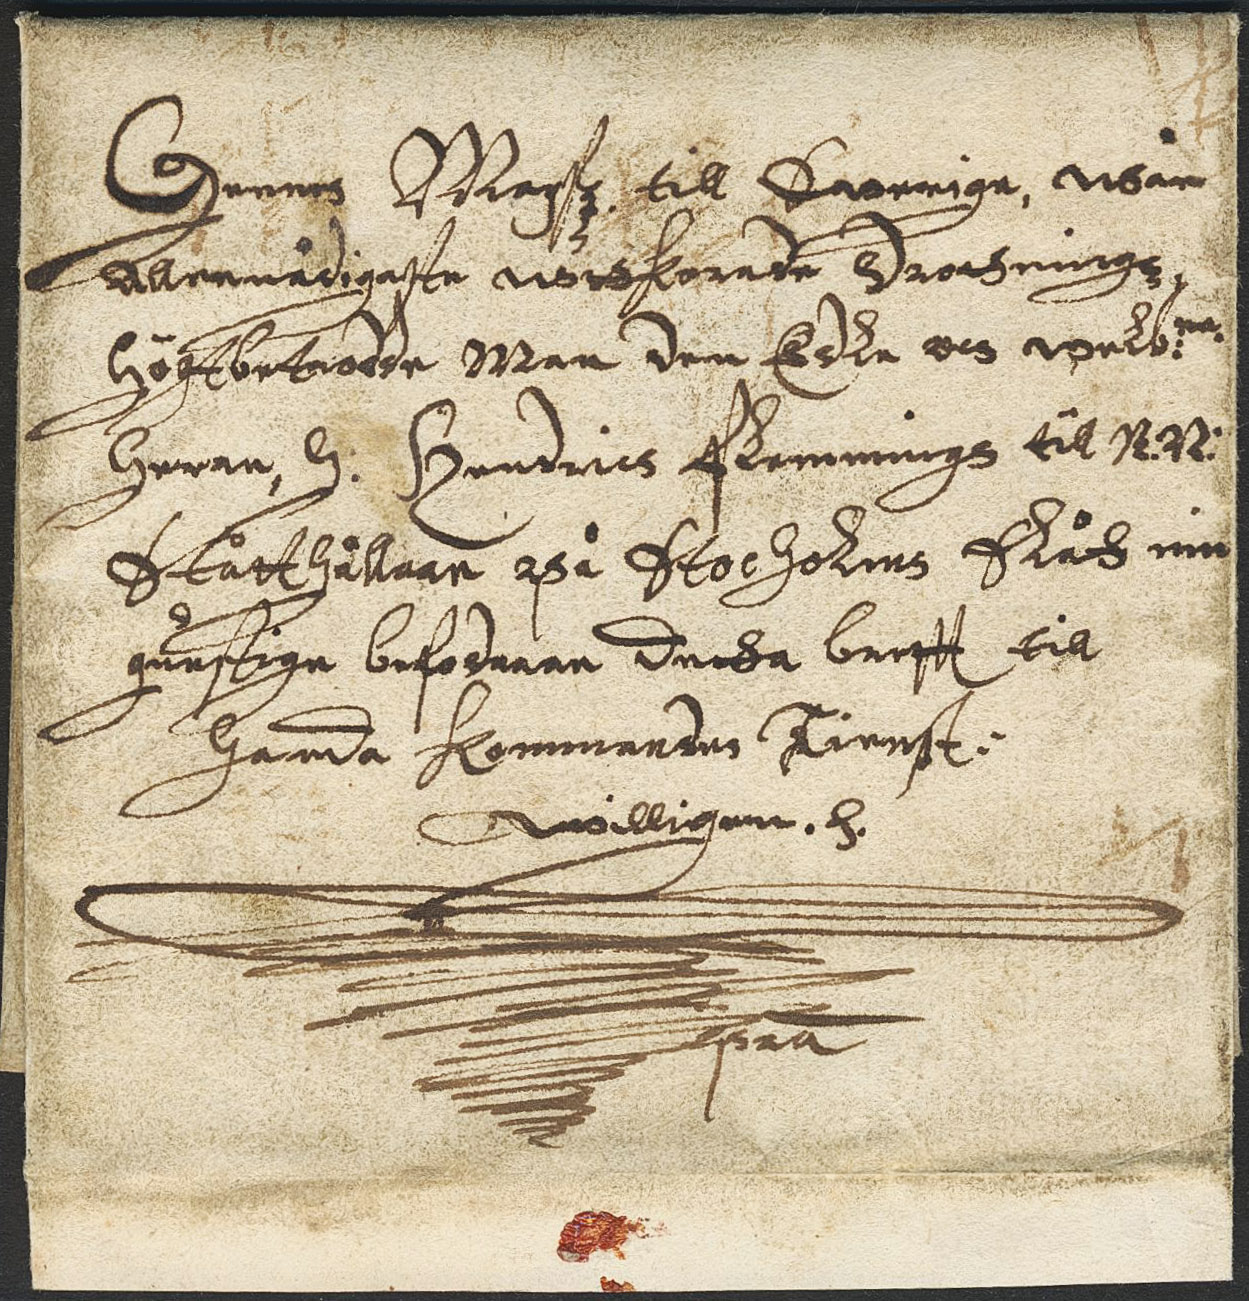 Hennes Maÿ:tz till Swerrige, wår
Allernådigeste utkorade Drotnings,
högtbetrodde Man den Edle och welb:ne:
Herre, H: Hendrich Flemmings till N:N:
Ståtthållare på Stocholms Slått min
gunstige befodrare detta breff till
handa kommandes Tienst:
willigen. H.
pra